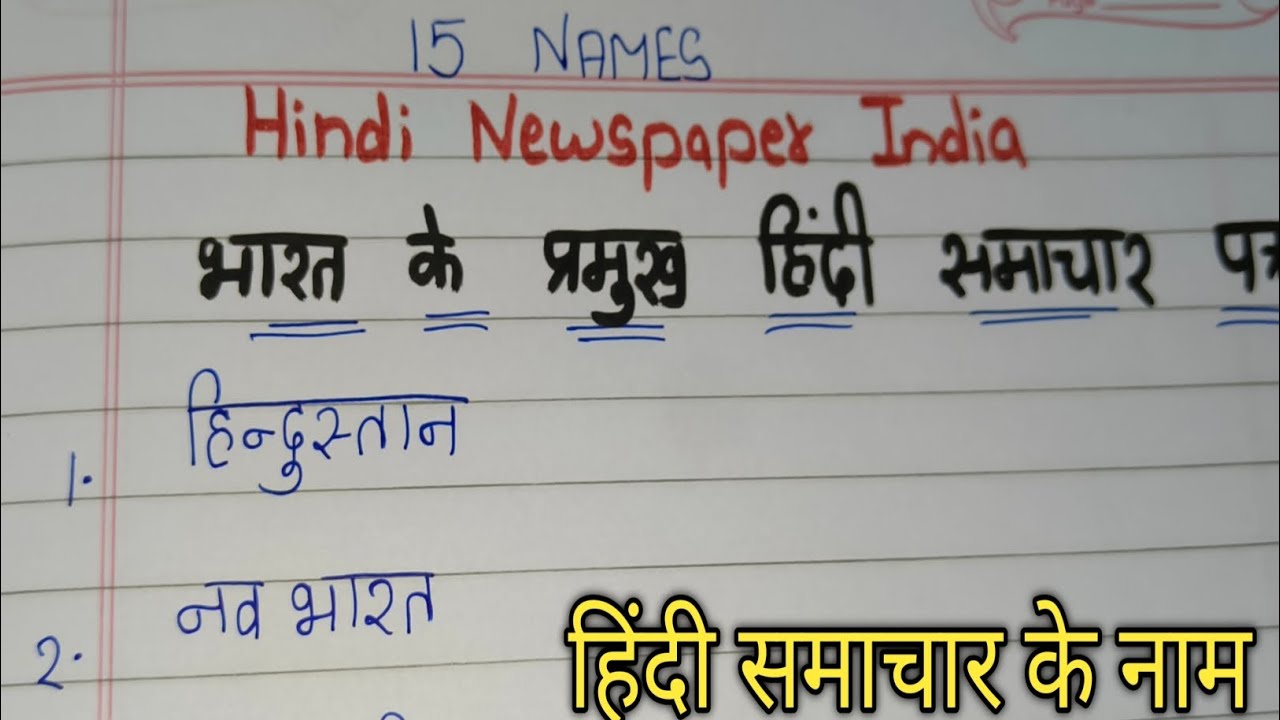 15 NAMES
Hindi Newspaper India
भारत के प्रमुख हिंदी समाचार पत्र
1. हिन्दुस्तान
2. नव भारत
हिंदी समाचार के नाम